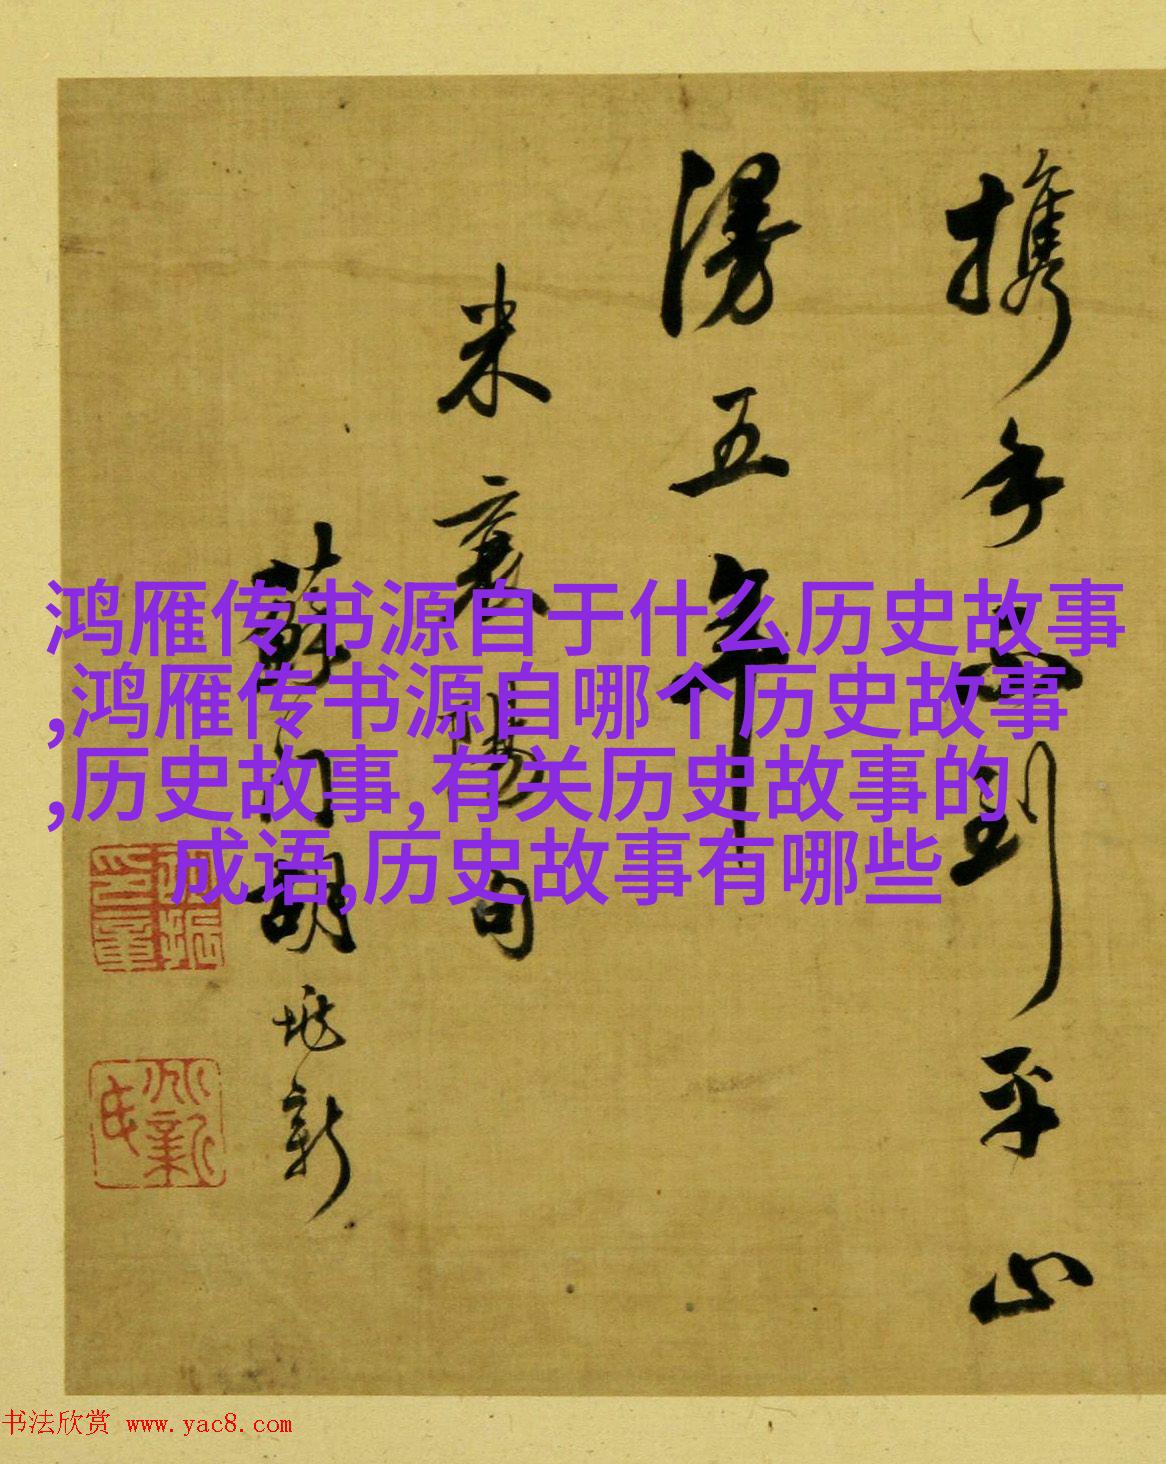 鸿雁传书源自于什么历史故事
,鸿雁传书源自哪个历史故事
,历史故事,有关历史故事的
成语,历史故事有哪些
携手到平山
漫五年
米襄陽句
蘇門胡垗新
书法欣赏 www.yac8.com